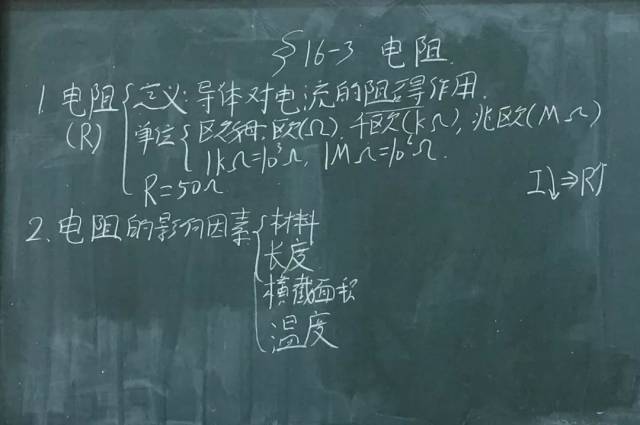 §16-3 电阻
1. 电阻 定义: 导体对电流的阻碍作用.
(R) 单位 欧姆: 欧(Ω). 千欧(kΩ), 兆欧(MΩ)
1kΩ=10³Ω, 1MΩ=10⁶Ω.
R=50Ω
I↓⇒R↑
2. 电阻的影响因素 材料
长度
横截面积
温度